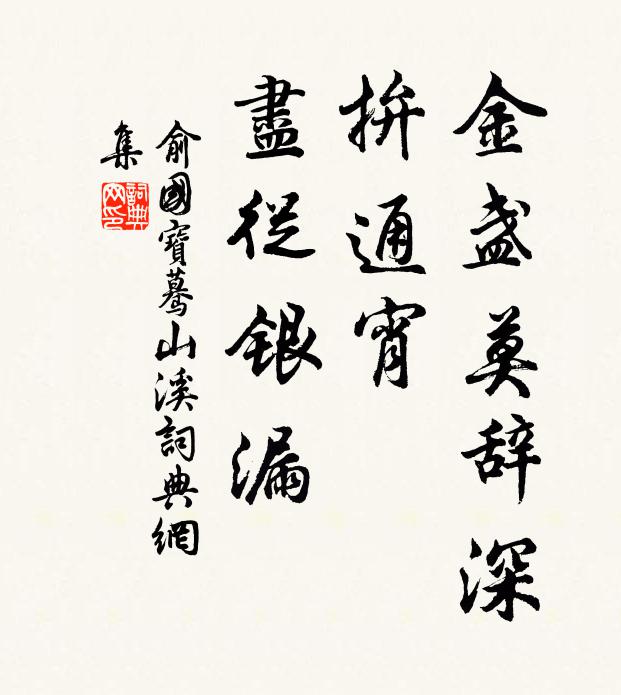 金盏莫辞深
拚通宵
盡從銀漏
俞國寶驀山溪詞典網
集
詞典
网印